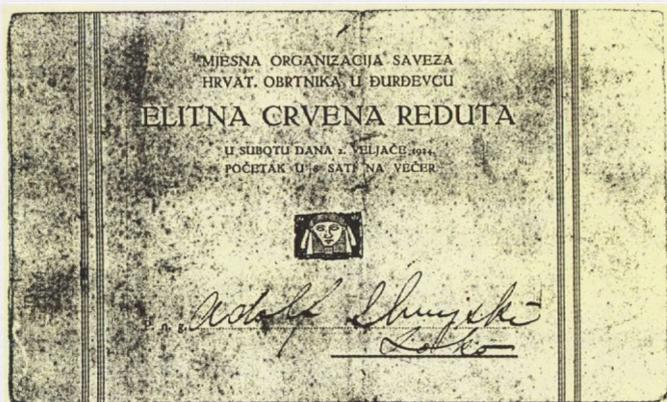 MJESNA ORGANIZACIJA SAVEZA
HRVAT. OBRTNIKA U ĐURĐEVCU
ELITNA CRVENA REDUTA
U SUBOTU DANA 2. VELJAČE
POČETAK U 8 SATI NA VEČER
P. n. g. Adolf